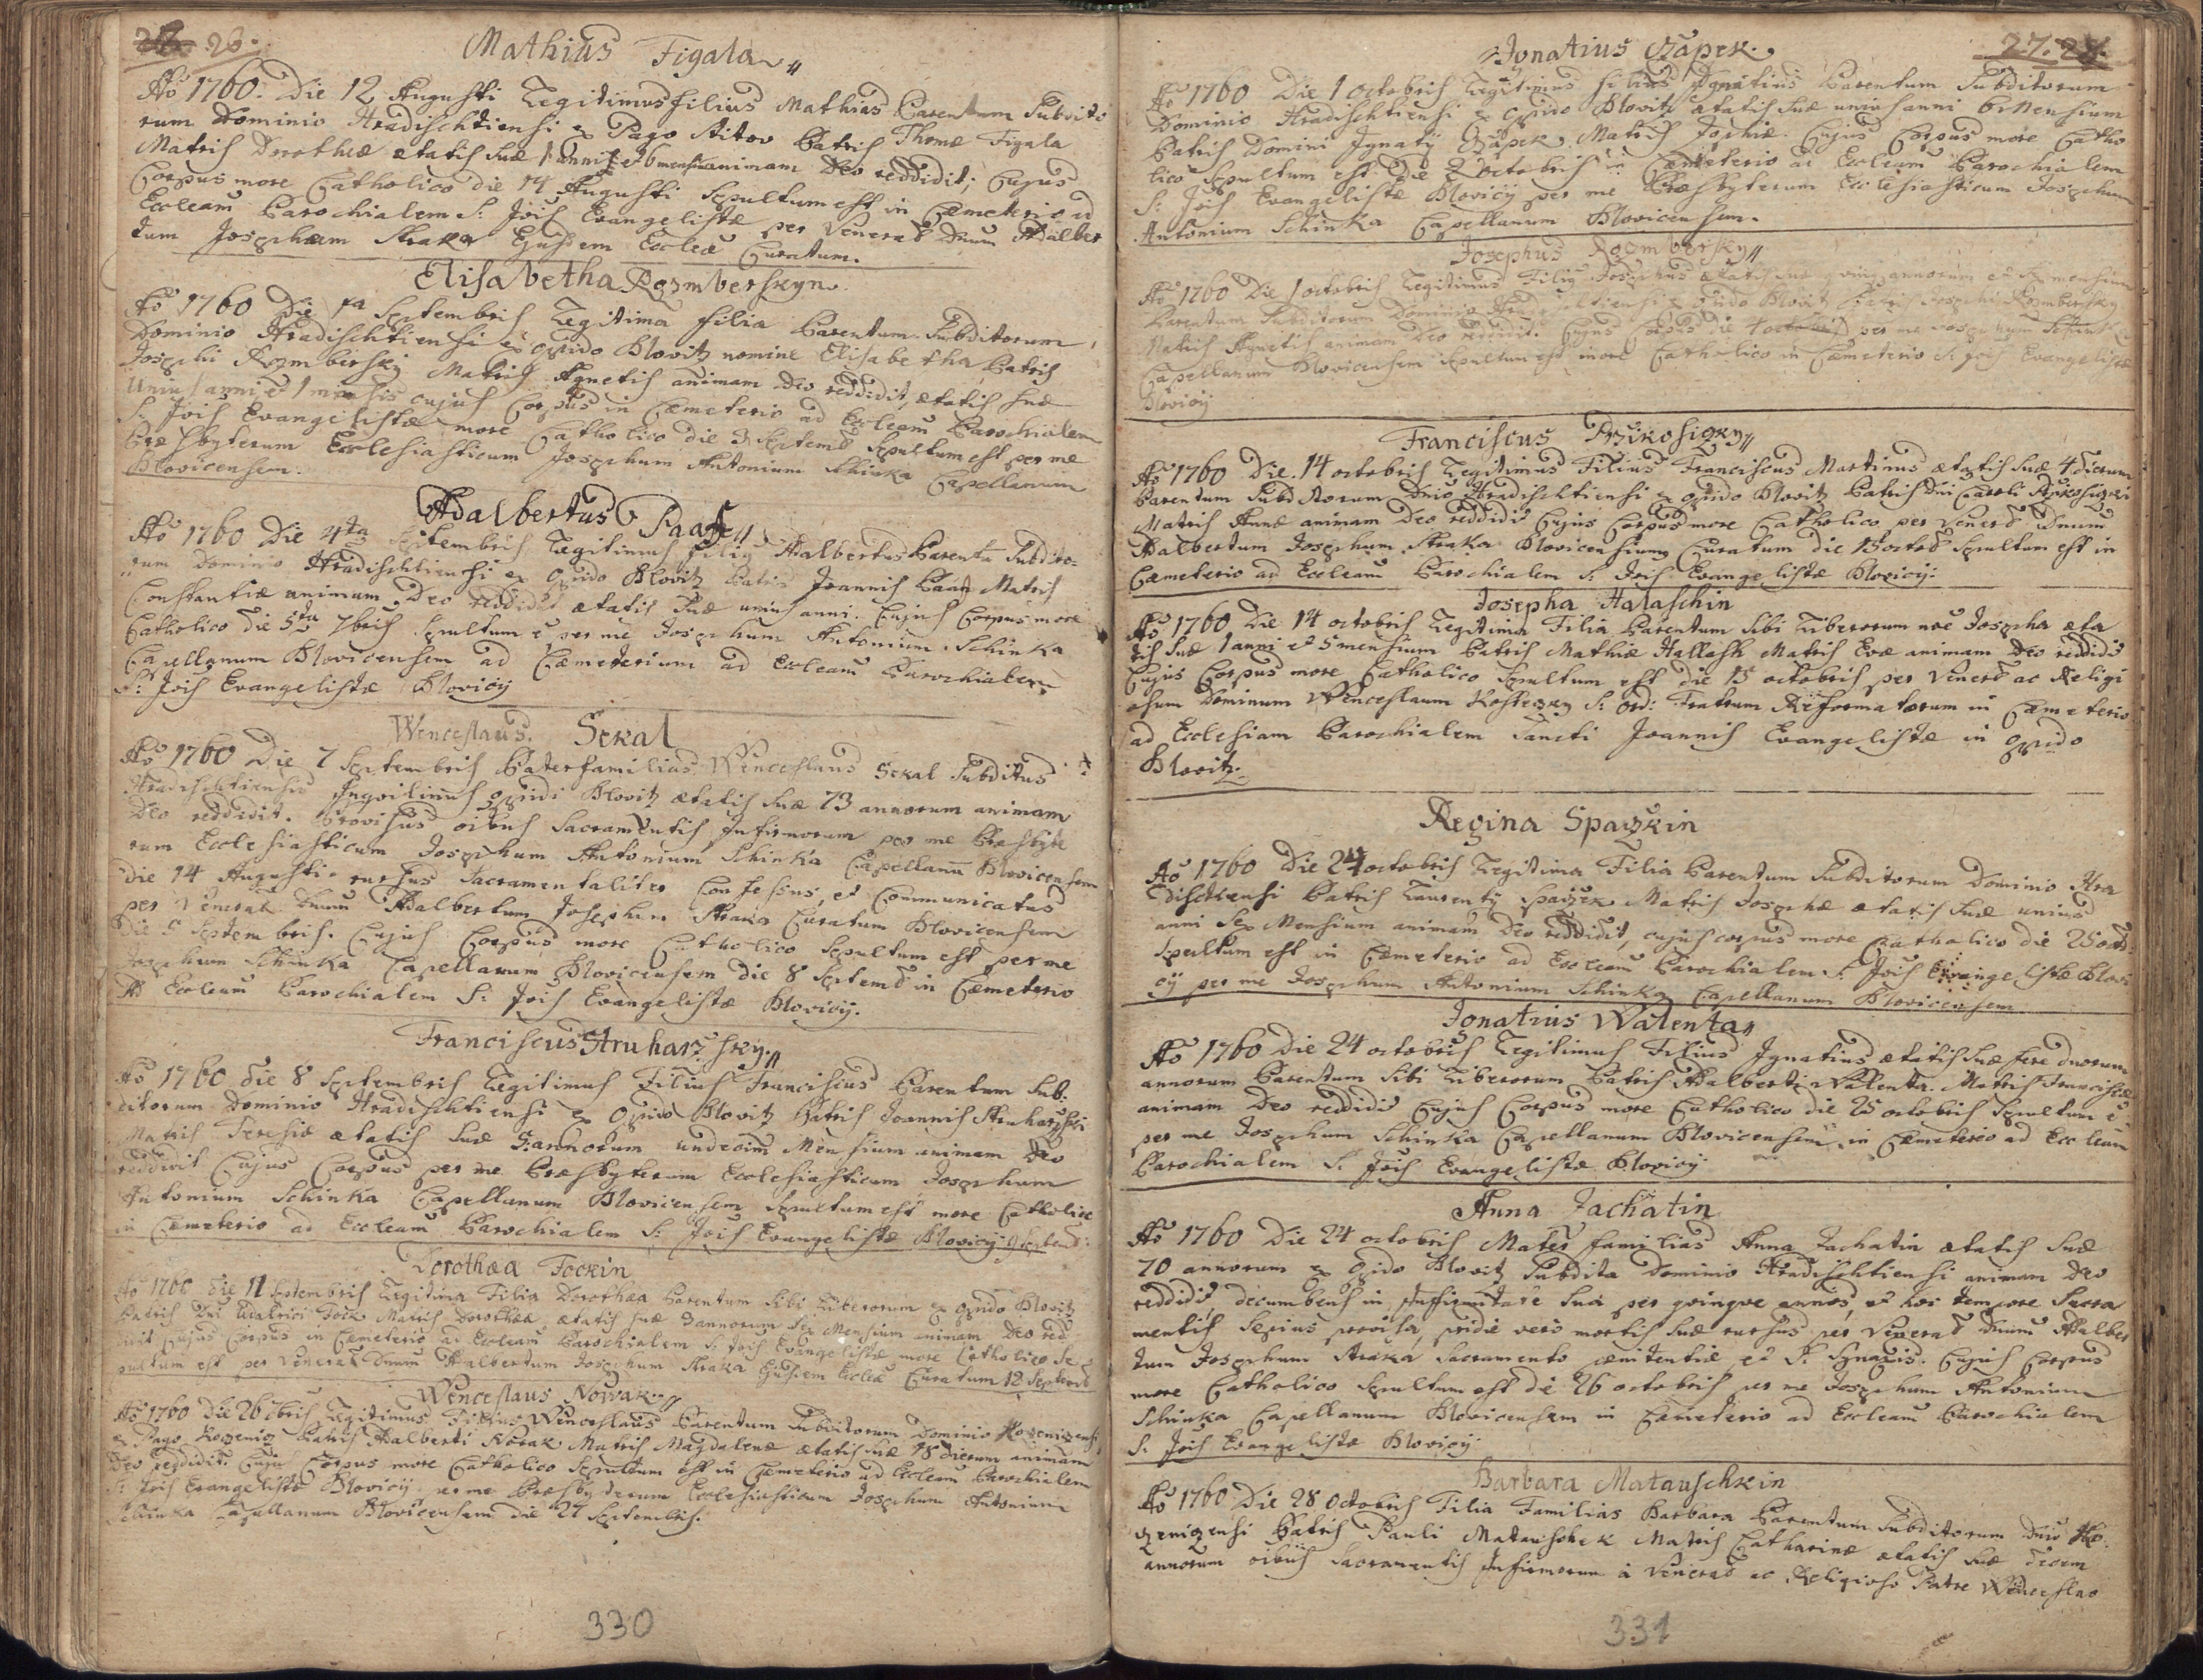 26.
Mathius Figala
Aõ 1760. Die 12 Augusti Legitimus filius Mathias Parentum Subdito
rum Dominio Hradischtiensi ex Pago Aitov Patris Thomæ Figala
Matris Dorothæ ætatis suæ 1 anni et 6 mensium animam Deo reddidit, Cujus
Corpus more Catholico die 14 Augusti Sepultum est in Cæmeterio ad
Eccleam Parochialem S: Jois Evangelistæ per Venerab Dnum Adalber
tum Josephum Straka Ejusdem Eccleæ Curatum.
Elisabetha Rozmberskyn
Aõ 1760 Die 1a Septembris Legitima filia Parentum Subditorum
Dominio Hradischtiensi ex Opido Blovitz nomine Elisabetha, Patris
Josephi Rozmbersky Matris Agnetis animam Deo reddidit, ætatis suæ
Unius anni et 1 mensis cujus Corpus in Cæmeterio ad Eccleam Parochialem
S: Jois Evangelistæ more Catholico die 3 Septemb Sepultum est per me
Præsbyterum Ecclesiasticum Josephum Antonium Schinka Capellanum
Blovicensem.
Adalbertus Paaf
Aõ 1760 Die 4ta Septembris Legitimus filiꝰ Adalbertus Parentũ Subdito-
rum Dominio Hradischtiensi ex Opido Blovitz Patris Joannis Matris
Constantiæ animam Deo reddidit ætatis suæ unius anni. Cujus Corpus more
Catholico die 5ta 7bris Sepultum ẽ per me Josephum Antonium Schinka
Capellanum Blovicensem ad Cæmeterium ad Eccleam Parochialem
S: Jois Evangelistæ Blovicÿ
Wenceslaus Sekal
Aõ 1760 Die 7 Septembris Paterfamilias Wenceslaus Sekal Subditus
Hradischtiensis Inquilinus Opidi Blovitz ætatis suæ 73 annorum animam
Deo reddidit. Provisus oibus Sacramentis Infirmorum per me Præsbyte
rum Ecclesiasticum Josephum Antonium Schinka Capellanũ Blovicensem
die 14 Augusti rursus Sacramentaliter Confessus, et Communicatus
per Venerab Dnum Adalbertum Josephum Straka Curatum Blovicensem
Die 5 Septembris. Cujus Corpus more Catholico Sepultum est per me
Josephum Schinka Capellanum Blovicensem die 8 Septemb in Cæmeterio
Ad Eccleam Parochialem S: Jois Evangelistæ Blovicÿ.
Franciscus Struharzsky
Aõ 1760 die 8 Septembris Legitimus Filius Franciscus Parentum Sub
ditorum Dominio Hradischtiensi ex Opido Blovitz Patris Joannis Struharzski
Matris Teresiæ ætatis suæ 5 annorum undecim Mensium animam Deo
reddidit Cujus Corpus per me Præsbyterum Ecclesiasticum Josephum
Antonium Schinka Capellanum Blovicensem Sepultum est more Catholico
in Cæmeterio ad Eccleam Parochialem S: Jois Evangelistæ Blovicÿ 9 Septemb
Dorothæa Fockin
Aõ 1760 die 11 Septembris Legitima Filia Dorothæa Parentum Sibi Liberorum ex Opido Blovitz
Patris Dni Fock Matris Dorothæa, ætatis suæ 3 annorum Sex Mensium animam Deo red
didit Cujus Corpus in Cæmeterio ad Eccleam Parochialem S: Jois Evangelistæ more Catholico Se
pultum est per Venerab Dnum Adalbertum Josephum Straka Ejusdem Eccleæ Curatum 12 Septemb
Wenceslaus Nowak
Aõ 1760 Die 26 7bris Legitimus Filius Wenceslaus Parentum Subditorum Dominio
ex Pago Patris Adalberti Novak Matris Magdalenæ ætatis suæ 18 dierum animam
Deo reddidit. Cujus Corpus more Catholico Sepultum est in Cæmeterio ad Eccleam Parochialem
S: Jois Evangelistæ Blovicÿ per me Præsbyterum Ecclesiasticum Josephum Antonium
Schinka Capellanum Blovicensem die 27 Septembris.
330
27.
Ignatius Czapek
Aõ 1760 Die 1 octobris Legitimus filius Ignatius Parentum Subditorum
Dominio Hradischtiensi ex Opido Blovitz ætatis suæ unius anni 6 Mensium
Patris Domini Ignatÿ Czapek Matris Sophiæ. Cujus Corpus more Catho
lico Sepultum est die 2 octobris in Cæmeterio ad Eccleam Parochialem
S: Jois Evangelistæ Blovicÿ per me Præsbyterum Ecclesiasticum Josephum
Antonium Schinka Capellanum Blovicensem.
Josephus Rozmbersky
Aõ 1760 Die 1 octobris Legitimus Filiꝰ Josephus ætatis suæ quinq annorum et mensium
Parentum Subditorum Dominio Hradischtiensi ex Opido Blovitz Patris Josephi Rozmbersky
Matris Agnetis animam Deo reddidit. Cujus Corpus die 4 octobris per me Josephum Schinka
Capellanum Blovicensem Sepultum est more Catholico in Cæmeterio S: Jois Evangelistæ
Blovicÿ
Franciscus Przikosiczky
Aõ 1760 Die 14 octobris Legitimus Filius Franciscus Martinus ætatis suæ 4 dierum
Parentum Subditorum Dnio Hradischtiensi ex Opido Blovitz Patris Dni Caroli Przikosiczki
Matris Annæ animam Deo reddidit Cujus Corpus more Catholico per Venerab Dnum
Adalbertum Josephum Straka Blovicensium Curatum die 15 octob Sepultum est in
Cæmeterio ad Eccleam Parochialem S: Jois Evangelistæ Blovicÿ.
Josepha Halaschin
Aõ 1760 Die 14 octobris Legitima Filia Parentum Sibi Liberorum noẽ Josepha æta
tis suæ 1 anni et 5 mensium Patris Mathiæ Hallash Matris Evæ animam Deo reddidit
Cujus Corpus more Catholico Sepultum est die 15 octobris per Venerab ac Religi
osum Dominum Wenceslaum S: Ord: Fratrum Reformatorum in Cæmeterio
ad Ecclesiam Parochialem Sancti Joannis Evangelistæ in Opido
Blovitz.
Regina Spaczkin
Aõ 1760 Die 24 octobris Legitima Filia Parentum Subditorum Dominio Hra
dischtiensi Patris Laurentÿ Spaczek Matris Josephæ ætatis suæ unius
anni Sex Mensium animam Deo reddidit, cujus corpus more Catholico die 25 octob
Sepultum est in Cæmeterio ad Eccleam Parochialem S: Jois Evangelistæ Blovi
cÿ per me Josephum Antonium Schinka Capellanum Blovicensem
Ignatius Walenta
Aõ 1760 Die 24 octobris Legitimus Filius Ignatius ætatis suæ fere duorum
annorum Parentum Sibi Liberorum Patris Adalberti Walenta Matris Franciscæ
animam Deo reddidit Cujus Corpus more Catholico die 25 octobris Sepultum ẽ
per me Josephum Schinka Capellanum Blovicensem in Cæmeterio ad Eccleam
Parochialem S: Jois Evangelistæ Blovicÿ
Anna Jachatin
Aõ 1760 Die 24 octobris Mater familias Anna Jachatin ætatis suæ
70 annorum ex Opido Blovitz Subdita Dominio Hradischtiensi animam Deo
reddidit, decumbens in infirmitate sua per quinque annos, et hoc tempore Sacra
mentis Sepius provisa, pridie vero mortis suæ rursus per Venerab Dnum Adalber
tum Josephum Straka Sacramento pænitentiæ et S. Synaxis. Cujus Corpus
more Catholico Sepultum est die 26 octobris per me Josephum Antonium
Schinka Capellanum Blovicensem in Cæmeterio ad Eccleam Parochialem
S: Jois Evangelistæ Blovicÿ
Barbara Matauschkin
Aõ 1760 Die 28 Octobris Filia Familias Barbara Parentum Subditorum Dnio Ko
czeniczensi Patris Pauli Mataushek Matris Catharinæ ætatis suæ decem
annorum oibus Sacramentis Infirmorum a Venerab ac Religioso Patre Wenceslao
331